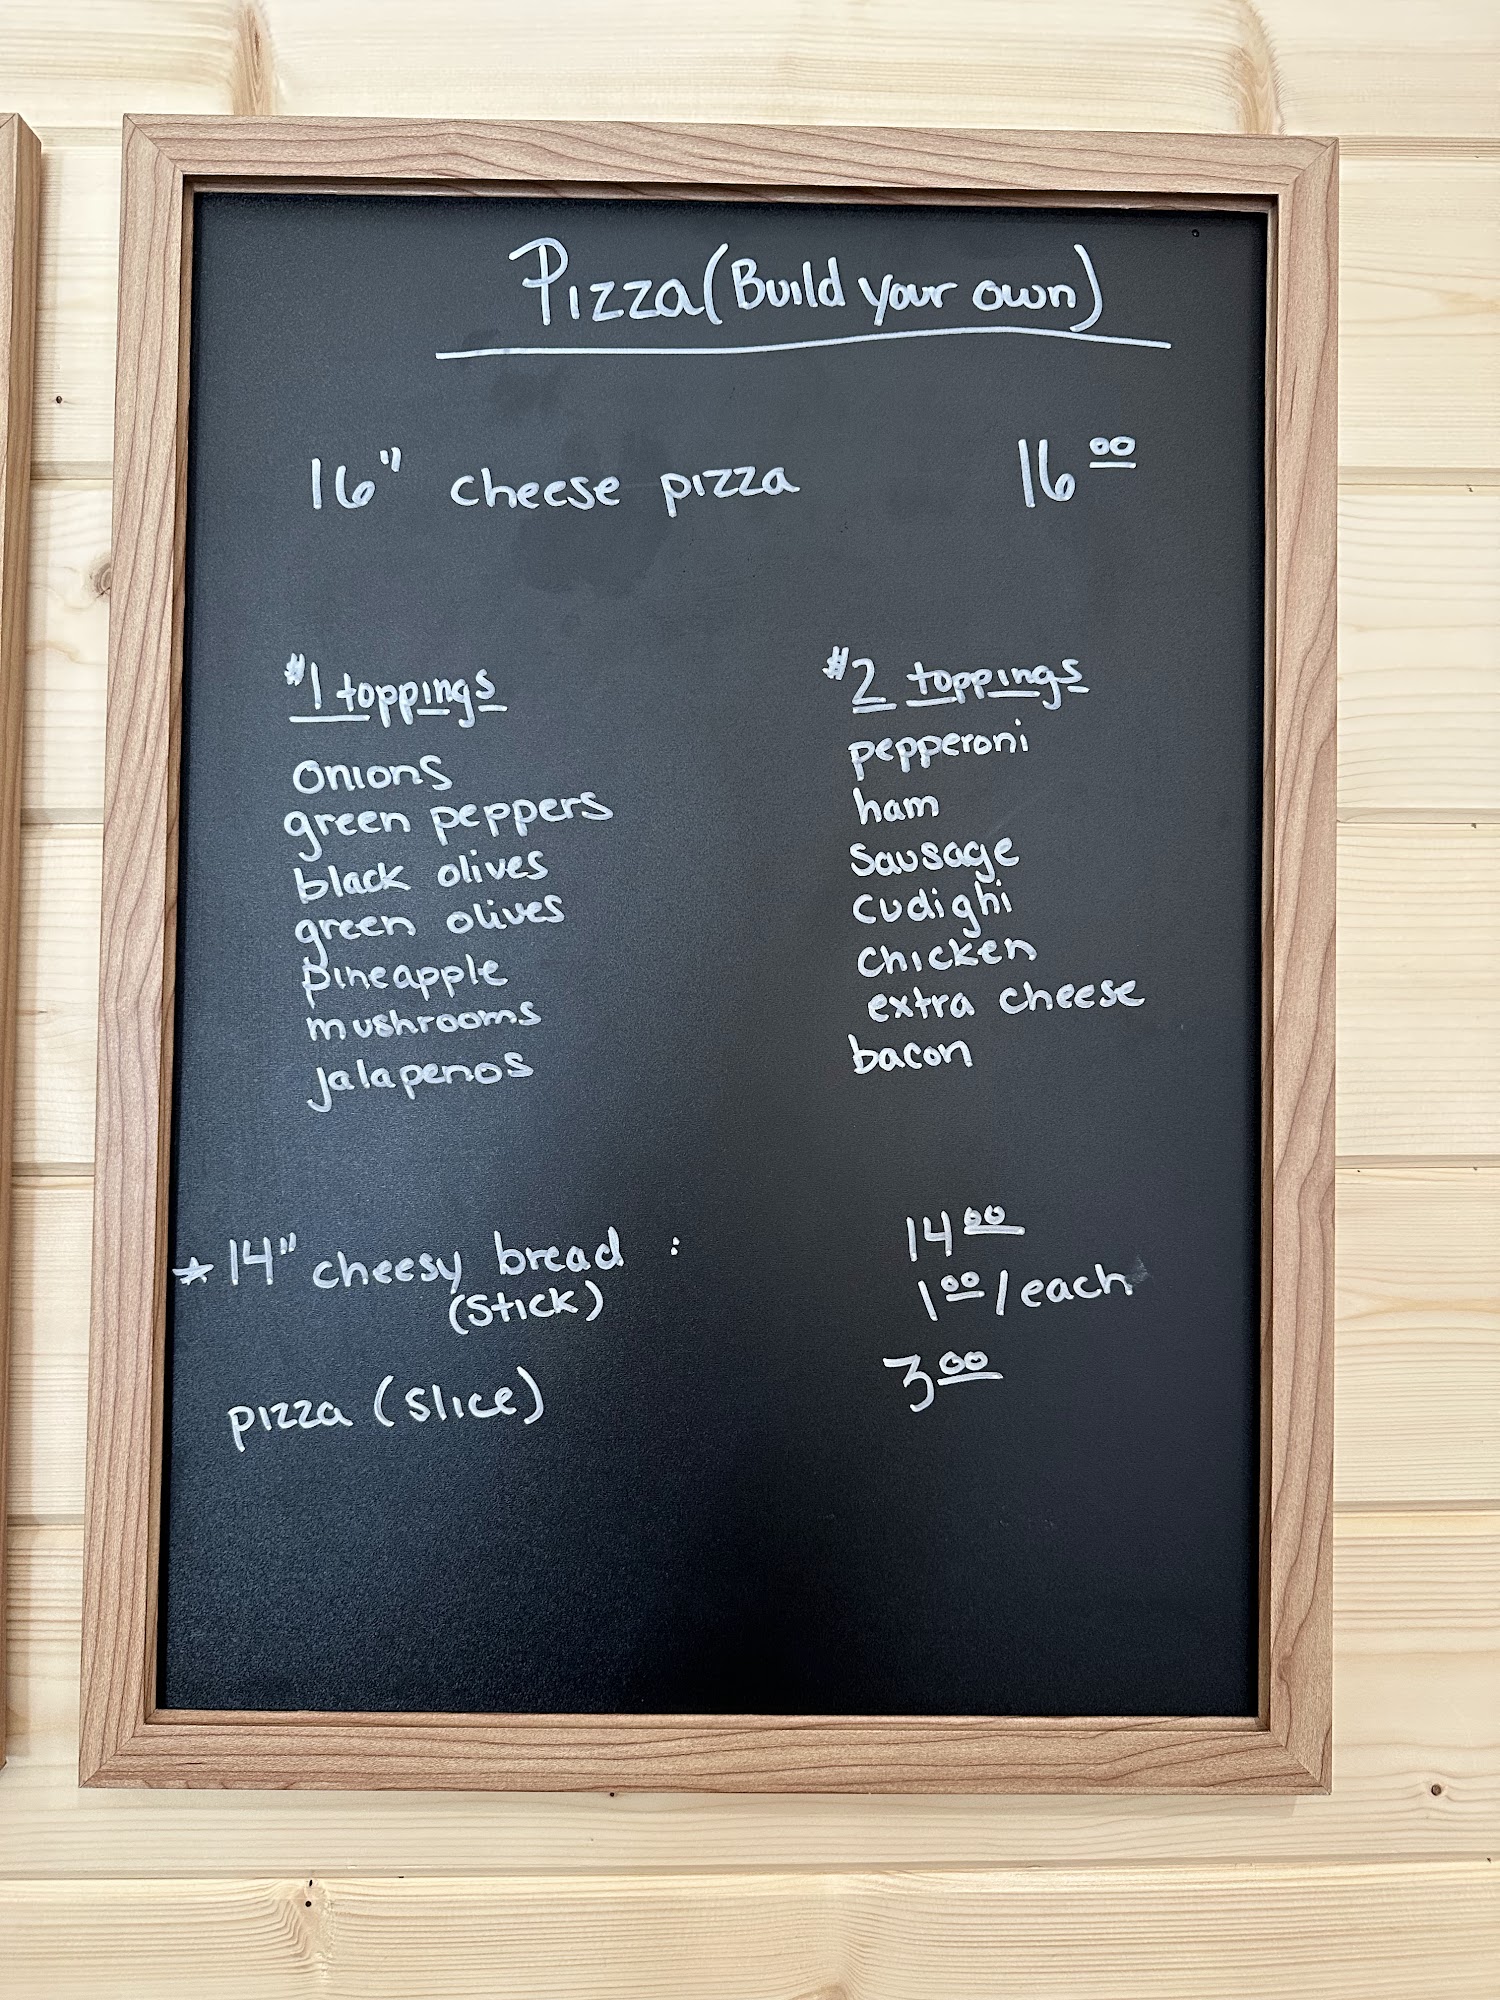 Pizza (Build your own)
16" cheese pizza 16.00
#1 toppings
onions
green peppers
black olives
green olives
pineapple
mushrooms
jalapenos
#2 toppings
pepperoni
ham
Sausage
cudighi
chicken
extra cheese
bacon
*14" cheesy bread : 14.00
(Stick) 1.00/each
pizza (slice) 3.00